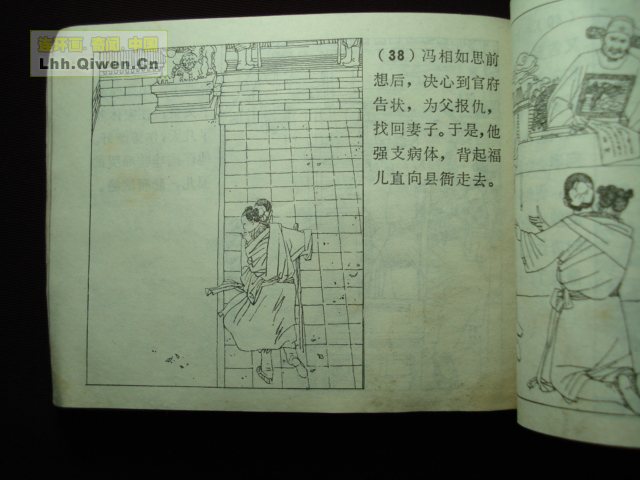 连环画.奇闻.中国
Lhh.Qiwen.Cn
(38)冯相如思前
想后，决心到官府
告状，为父报仇，
找回妻子。于是，他
强支病体，背起福
儿直向县衙走去。